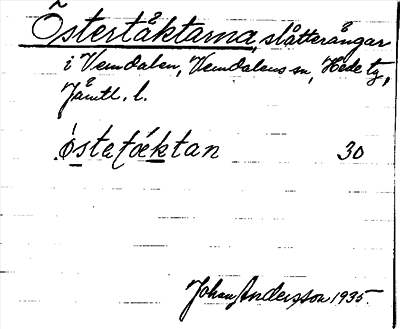 Östertåktarna, slåtterängar
i Vemdalen, Vemdalens sn, Hede tg,
Jämtl. l.
östetǻktan 30
Johan Andersson 1935.